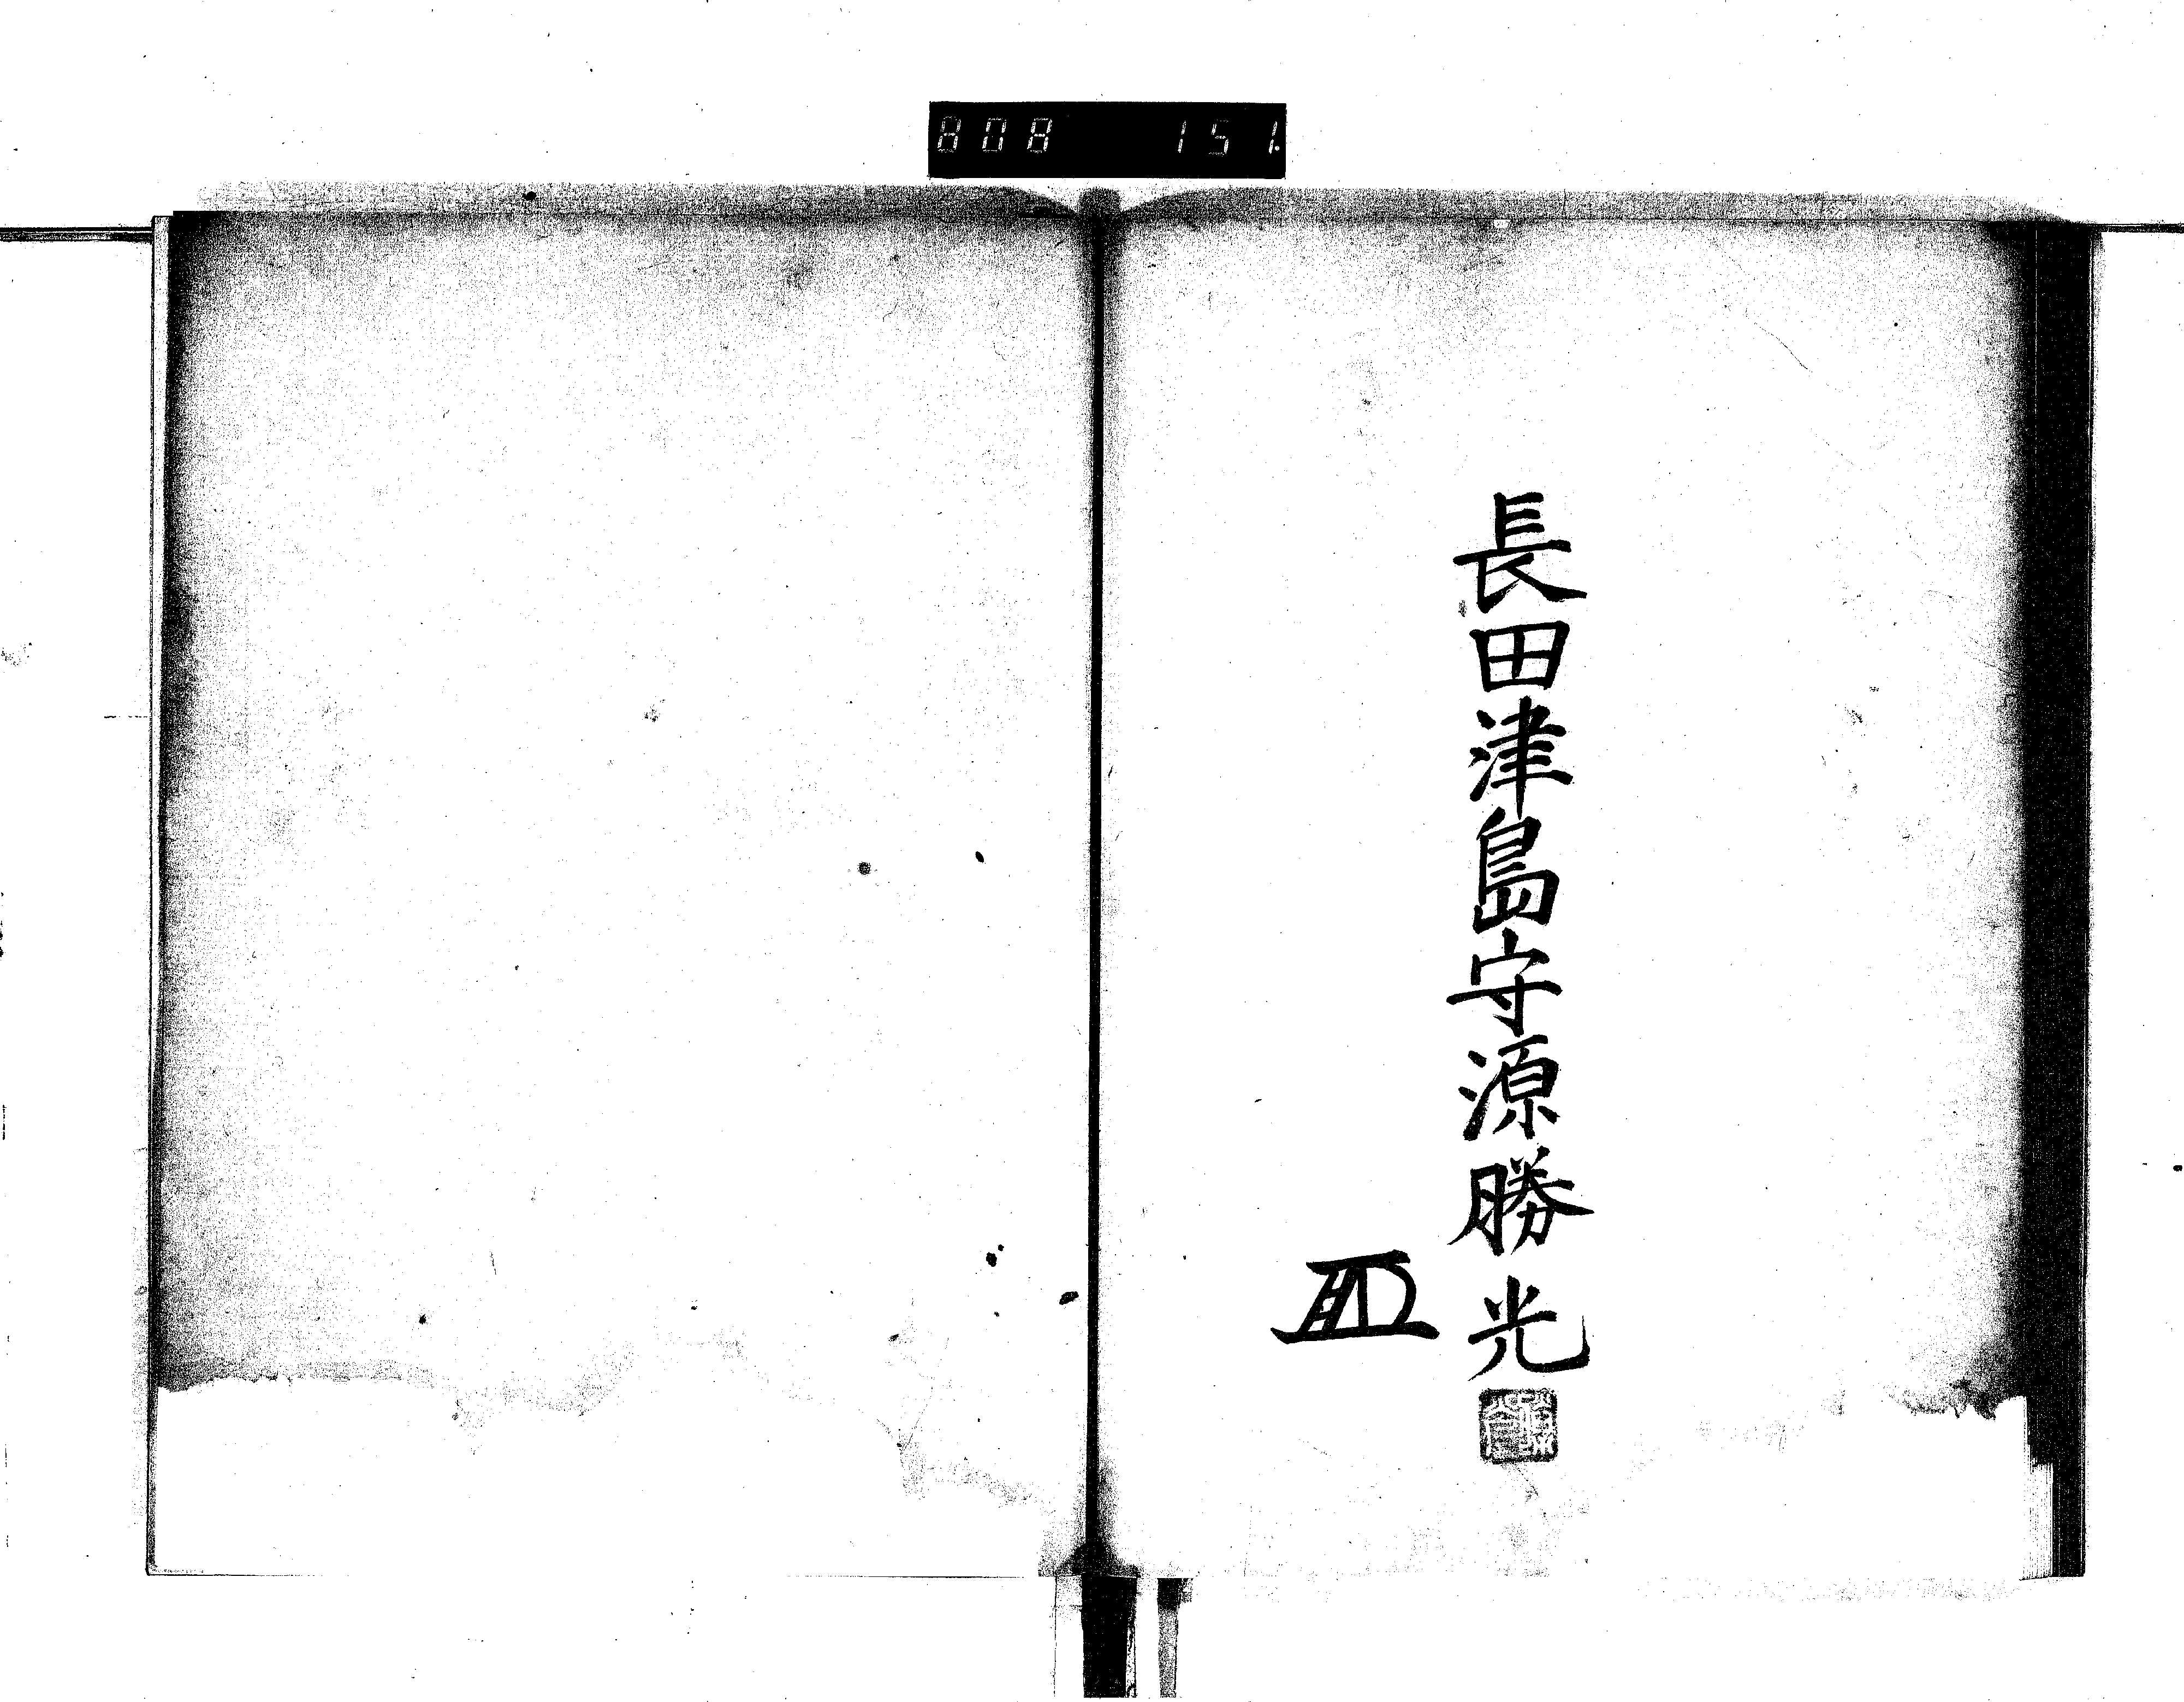 808 151.
長田津島守源勝光